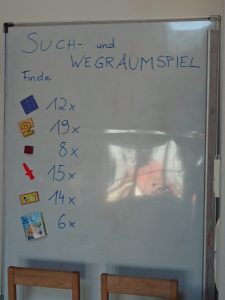 SUCH- und
WEGRÄUMSPIEL
Finde
12x
2 19x
8x
15x
14x
6x